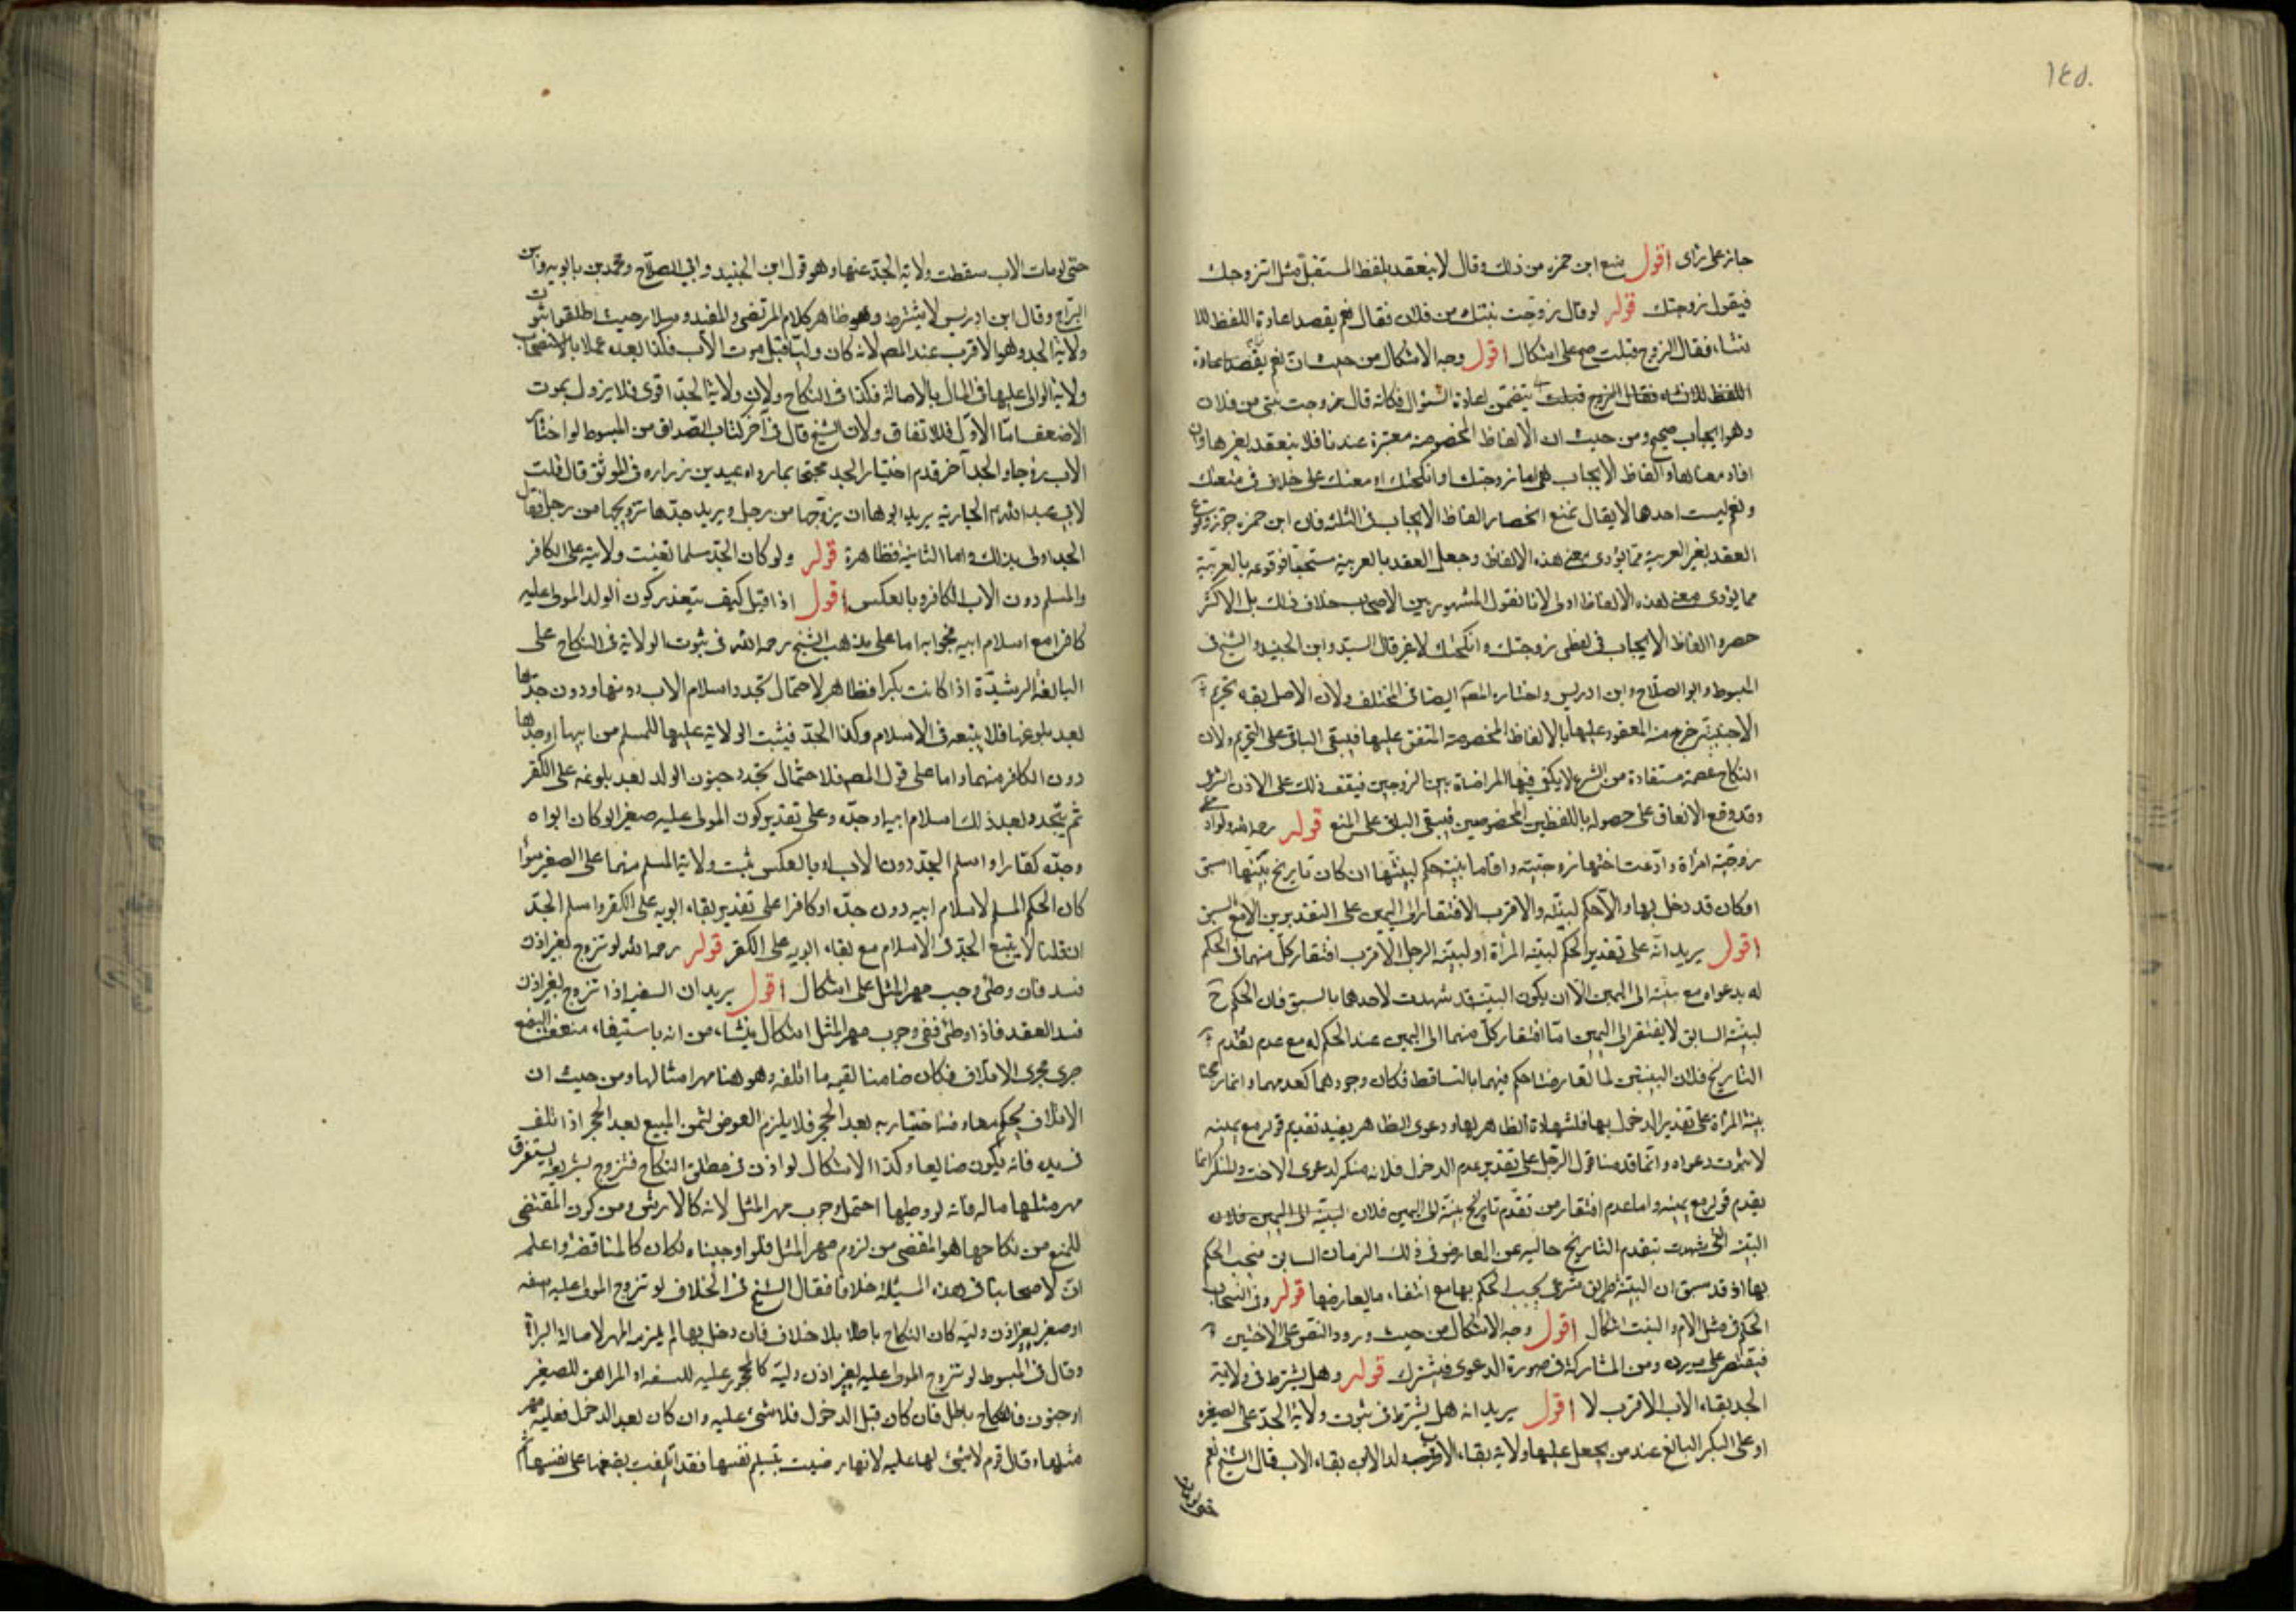 ١٤٥
جاز على رأى اقول منع ابن حمزه من ذلك وقال لا ينعقد بلفظ المستقبل مثل اتزوجك
فيقول زوجتك قوله لو قال زوجت بنتك من فلان فقال نعم بقصد اعادة اللفظ للا
نشاء فقال الزوج قبلت صح على اشكال اقول وجه الاشكال من حيث ان نعم بقصد اعادة
اللفظ للانشاء فقال الزوج قبلت يتضمن اعادة السؤال فكانه قال زوجت بنتى من فلان
وهو ايجاب صحيح ومن حيث ان الالفاظ المخصوصة معتبرة عندنا فلا ينعقد بغيرها وان
افاد معناها والفاظ الايجاب هى اما زوجتك او انكحتك او متعتك على خلاف فى متعتك
ونعم ليست احدها لا يقال نمنع انحصار الفاظ الايجاب فى الثلثة فان ابن حمزه جوز وقوع
العقد بغير العربية مما يؤدى معنى هذه الالفاظ وجعل العقد بالعربية مستحبا فوقوعه بالعربية
مما يؤدى معنى هذه الالفاظ اولى لانا نقول المشهور بين الاصحاب خلاف ذلك بل الاكثر
حصروا الفاظ الايجاب فى لفظى زوجتك وانكحتك لا غير قال السيد وابن الجنيد والشيخ فى
المبسوط وابو الصلاح وابن ادريس واختاره المصـ ايضا فى المختلف ولان الاصل بقاء تحريم
الاجنبية خرج منه المعقود عليها بالالفاظ المخصوصة المتفق عليها فيبقى الباقى على التحريم ولان
النكاح عصمة مستفادة من الشرع لا يكفى فيها المراضاة بين الزوجين فيقف ذلك على الاذن الشرعى
وقد وقع الاتفاق على حصوله باللفظين المخصوصين فيبقى الباقى على المنع قوله رحمه الله ولو ادعى
زوجية امرأة وادعت اختها زوجيته واقاما بينة حكم لبينتها ان كان تاريخ بينتها اسبق
او كان قد دخل بها والا حكم لبينته والاقرب الافتقار الى اليمين على التقديرين الا مع السبق
اقول يريد انه على تقدير الحكم لبينة المرأة او لبينة الرجل الاقرب افتقار كل منهما فى الحكم
له بدعواه مع بينته الى اليمين الا ان يكون البينة قد شهدت لاحدهما بالسبق فان الحكم ح
لبينة السابق لا يفتقر الى اليمين اما افتقار كل منهما الى اليمين عند الحكم له مع عدم تقدم
التاريخ فلان البينتين لما تعارضتا حكم فيهما بالتساقط فكان وجودهما كعدمهما وانما رجحنا
بينة المرأة على تقدير الدخول بها فلشهادة الظاهر لها ودعوى الظاهر يفيد تقديم قوله مع يمينه
لا ثبوت دعواه وانما قدمنا قول الرجل على تقدير عدم الدخول فلانه منكر لدعوى الاخت والمنكر انما
يقدم قوله مع يمينه واما عدم افتقار من تقدم تاريخ بينته الى اليمين فلان البينة الى اليمين فلان
البينة التى شهدت بتقدم التاريخ خالية عن المعارض فى ذلك الزمان السابق فيجب الحكم
بها اذ قد سبق ان البينة طريق شرعى يجب الحكم بها مع انتفاء ما يعارضها قوله وفى انسحاب
الحكم فى مثل الام والبنت اشكال اقول وجه الاشكال من حيث ورود النص على الاختين
فيقتصر على مورده ومن المشاركة فى صورة الدعوى فيشترك قوله وهل يشترط فى ولاية
الجد بقاء الاب الاقرب لا اقول يريد انه هل يشترط فى ثبوت ولاية الجد على الصغيرة
او على البكر البالغ عند من يجعل عليها ولاية بقاء الاب قال الشيخ نعم
حتى لو مات
حتى لو مات الاب سقطت ولاية الجد عنها وهو قول ابن الجنيد وابى الصلاح ومحمد بن بابويه وابن
البراج وقال ابن ادريس لا يشترط وهو ظاهر كلام المرتضى والمفيد وسلار حيث اطلقوا ثبوت
ولاية الجد وهو الاقرب عند المصـ لانه كان وليا قبل موت الاب فكذا بعده عملا بالاستصحاب
ولانه الوالى عليها فى المال بالاصالة فكذا فى النكاح ولان ولاية الجد اقوى فلا يزول بموت
الاضعف اما الاول فللاتفاق ولان الشيخ قال فى آخر كتاب الصداق من المبسوط لو اختار
الاب زوجا والجد آخر قدم اختيار الجد محتجا بما رواه عبيد بن زراره فى الموثق قال قلت
لابى عبد الله ع الجارية يريد ابوها ان يزوجها من رجل ويريد جدها تزويجها من رجل فقال
الجد اولى بذلك واما الثانية فظاهرة قوله ولو كان الجد مسلما تعينت ولايته على الكافر
والمسلم دون الاب الكافر وبالعكس اقول اذا قيل كيف يتعذر كون الولد المولى عليه
كافرا مع اسلام ابيه فجوابه اما على مذهب الشيخ رحمه الله فى ثبوت الولاية فى النكاح على
البالغة الرشيدة اذا كانت بكرا فظاهر لاحتمال تجدد اسلام الاب دونها ودون جدها
بعد بلوغها فلا يتبعه فى الاسلام وكذا الجد فيثبت الولاية عليها للمسلم من ابيها او جدها
دون الكافر منهما واما على قول المصـ فلاحتمال تجدد جنون الولد بعد بلوغه على الكفر
ثم يتجدد بعد ذلك اسلام ابيه او جده وعلى تقدير كون المولى عليه صغيرا لو كان ابواه
وجده كفارا واسلم الجد دون الاب او بالعكس ثبت ولاية المسلم منهما على الصغير سواء
كان الحكم المسلم لاسلام ابيه دون جده او كافرا على تقدير بقاء ابويه على الكفر واسلم الجد
ان قلنا لا يتبع الجد فى الاسلام مع بقاء ابويه على الكفر قوله رحمه الله لو تزوج بغير اذن
فسد فان وطئ وجب مهر المثل على اشكال اقول يريد ان السفيه اذا تزوج بغير اذن
فسد العقد فاذا وطئ ففى وجوب مهر المثل اشكال ينشاء من انه باستيفاء منفعة البضع
جرى مجرى الاتلاف فكان ضامنا لقيمة ما اتلفه وهو هنا مهر امثالها ومن حيث ان
الاتلاف بحكمها ومن اختياره بعد الحجر فلا يلزم العوض كثمن المبيع بعد الحجر اذا تلف
فى يده فانه يكون ضايعا وكذا الاشكال لو اذن فى مطلق النكاح فتزوج بشريفة يستغرق
مهر مثلها ماله فانه لو وطيها احتمل وجوب مهر المثل لانه كالارش ومن كون المقتضى
للمنع من نكاحها هو المقضى من لزوم مهر المثل فلو اوجبناه لكان كالمناقضة واعلم
ان لاصحابنا فى هذه المسئلة خلافا فقال الشيخ فى الخلاف لو تزوج المولى عليه لسفه
او صغر بغير اذن وليه كان النكاح باطلا بلا خلاف فان دخل بها لم يلزمه المهر لاصالة البراءة
وقال فى المبسوط لو تزوج المولى عليه بغير اذن وليه كالمحجور عليه للسفه او المراهق للصغير
او جنون فالنكاح باطل فان كان قبل الدخول فلا شىء عليه وان كان بعد الدخول فعليه مهر
مثلها وقال قوم لا شىء لها عليه لانها رضيت بتسليم نفسها فقد اتلفت بضعها على نفسها ثم